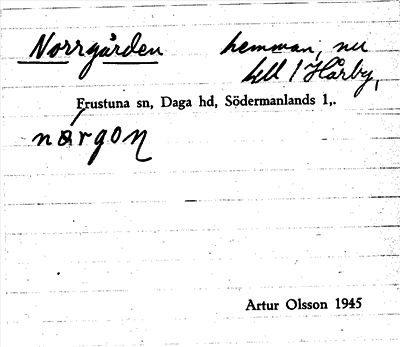 Norrgården hemman, nu
del l Hårby,
Frustuna sn, Daga hd, Södermanlands l,.
nórgon
Artur Olsson 1945